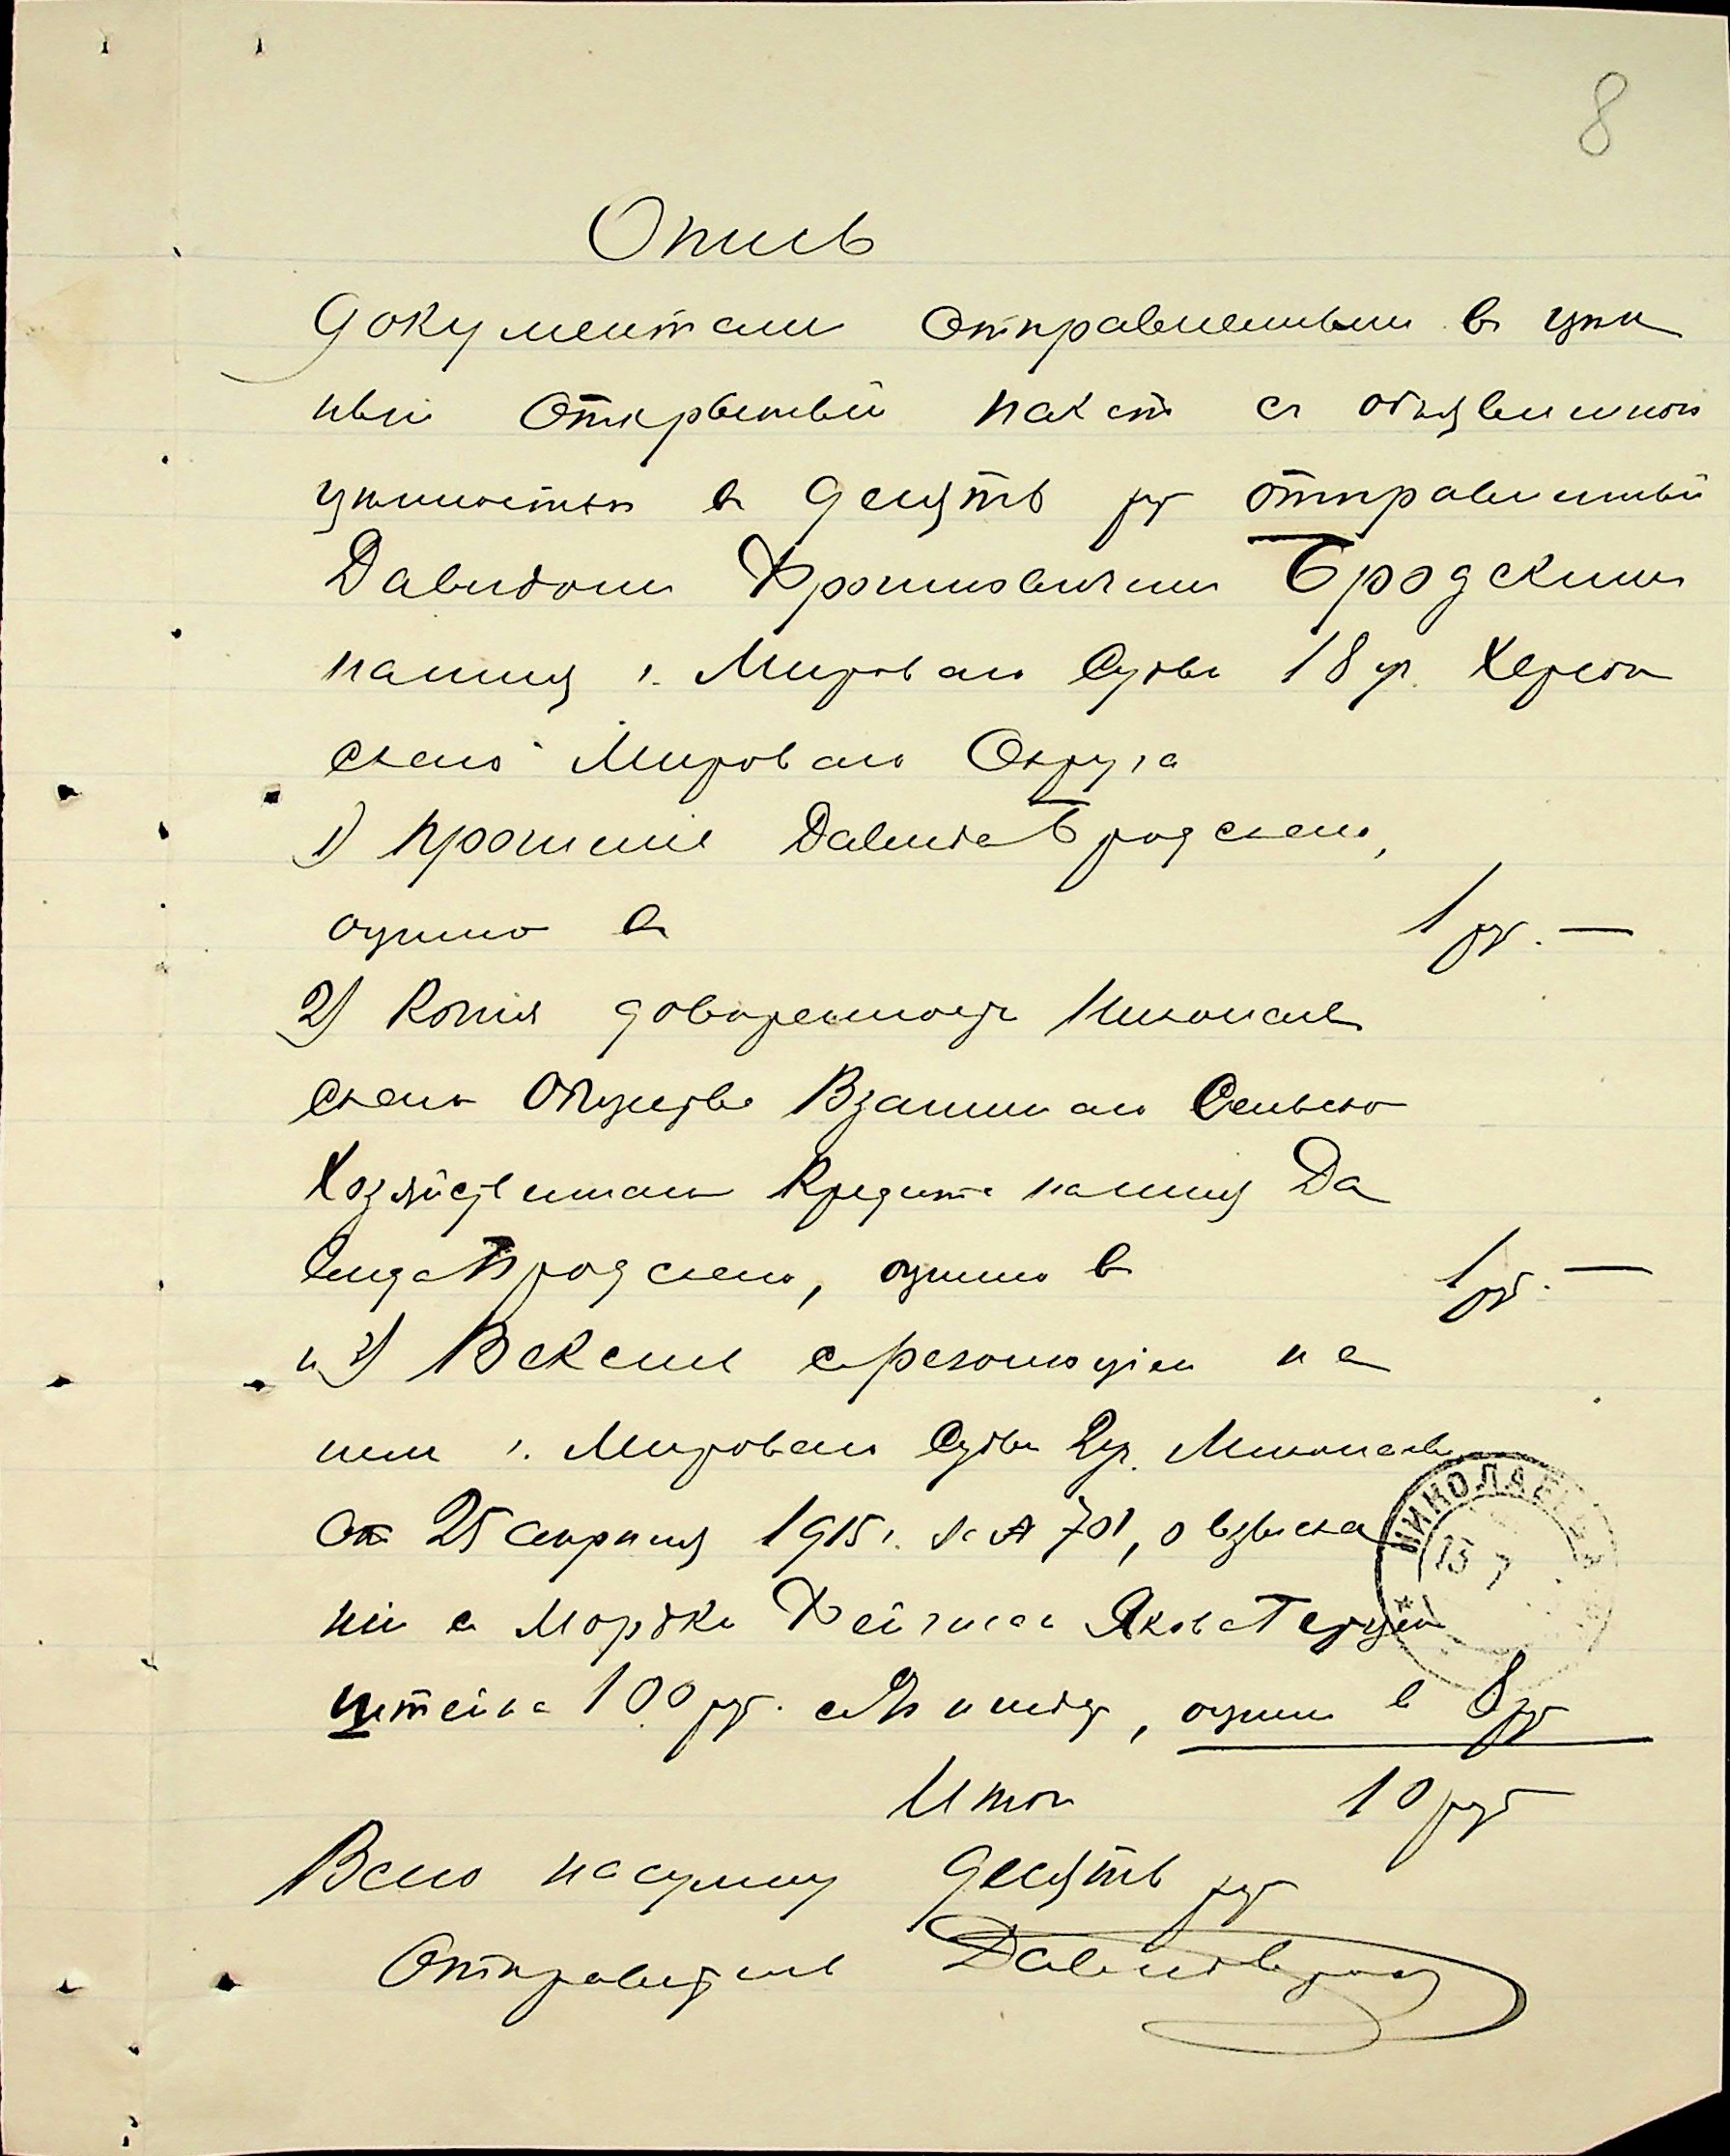 8
Опись
документам отправленным в цен
ный открытый пакет съ объявленной
ценностью в десять ру отправленный
Давидом Фроимовичем Бродским
на имя г. Мироваго Судьи 18 уч. Херсон
скаго Мироваго Округа
1) Прошение Давида Бродскаго,
оценено в 1 ру. —
2) Копия доверенности Николаев
скаго Общества Взаимнаго Сельско
Хозяйственнаго Кредита на имя Да
вида Бродскаго, оценено в 1 ру. —
и 3) Вексель с резолюціей на
нем г. Мироваго Судьи 2 уч. Николаев
от 25 апреля 1915 г. за № 701, о взыска
ніи с Мордки Фейгиса Якова Герцен
штейна 100 ру. с %, оценен в 8 ру
Итого 10 ру
Всего на сумму десять ру
Отправитель Давид Бродский
НИКОЛАЕВЪ
13 7